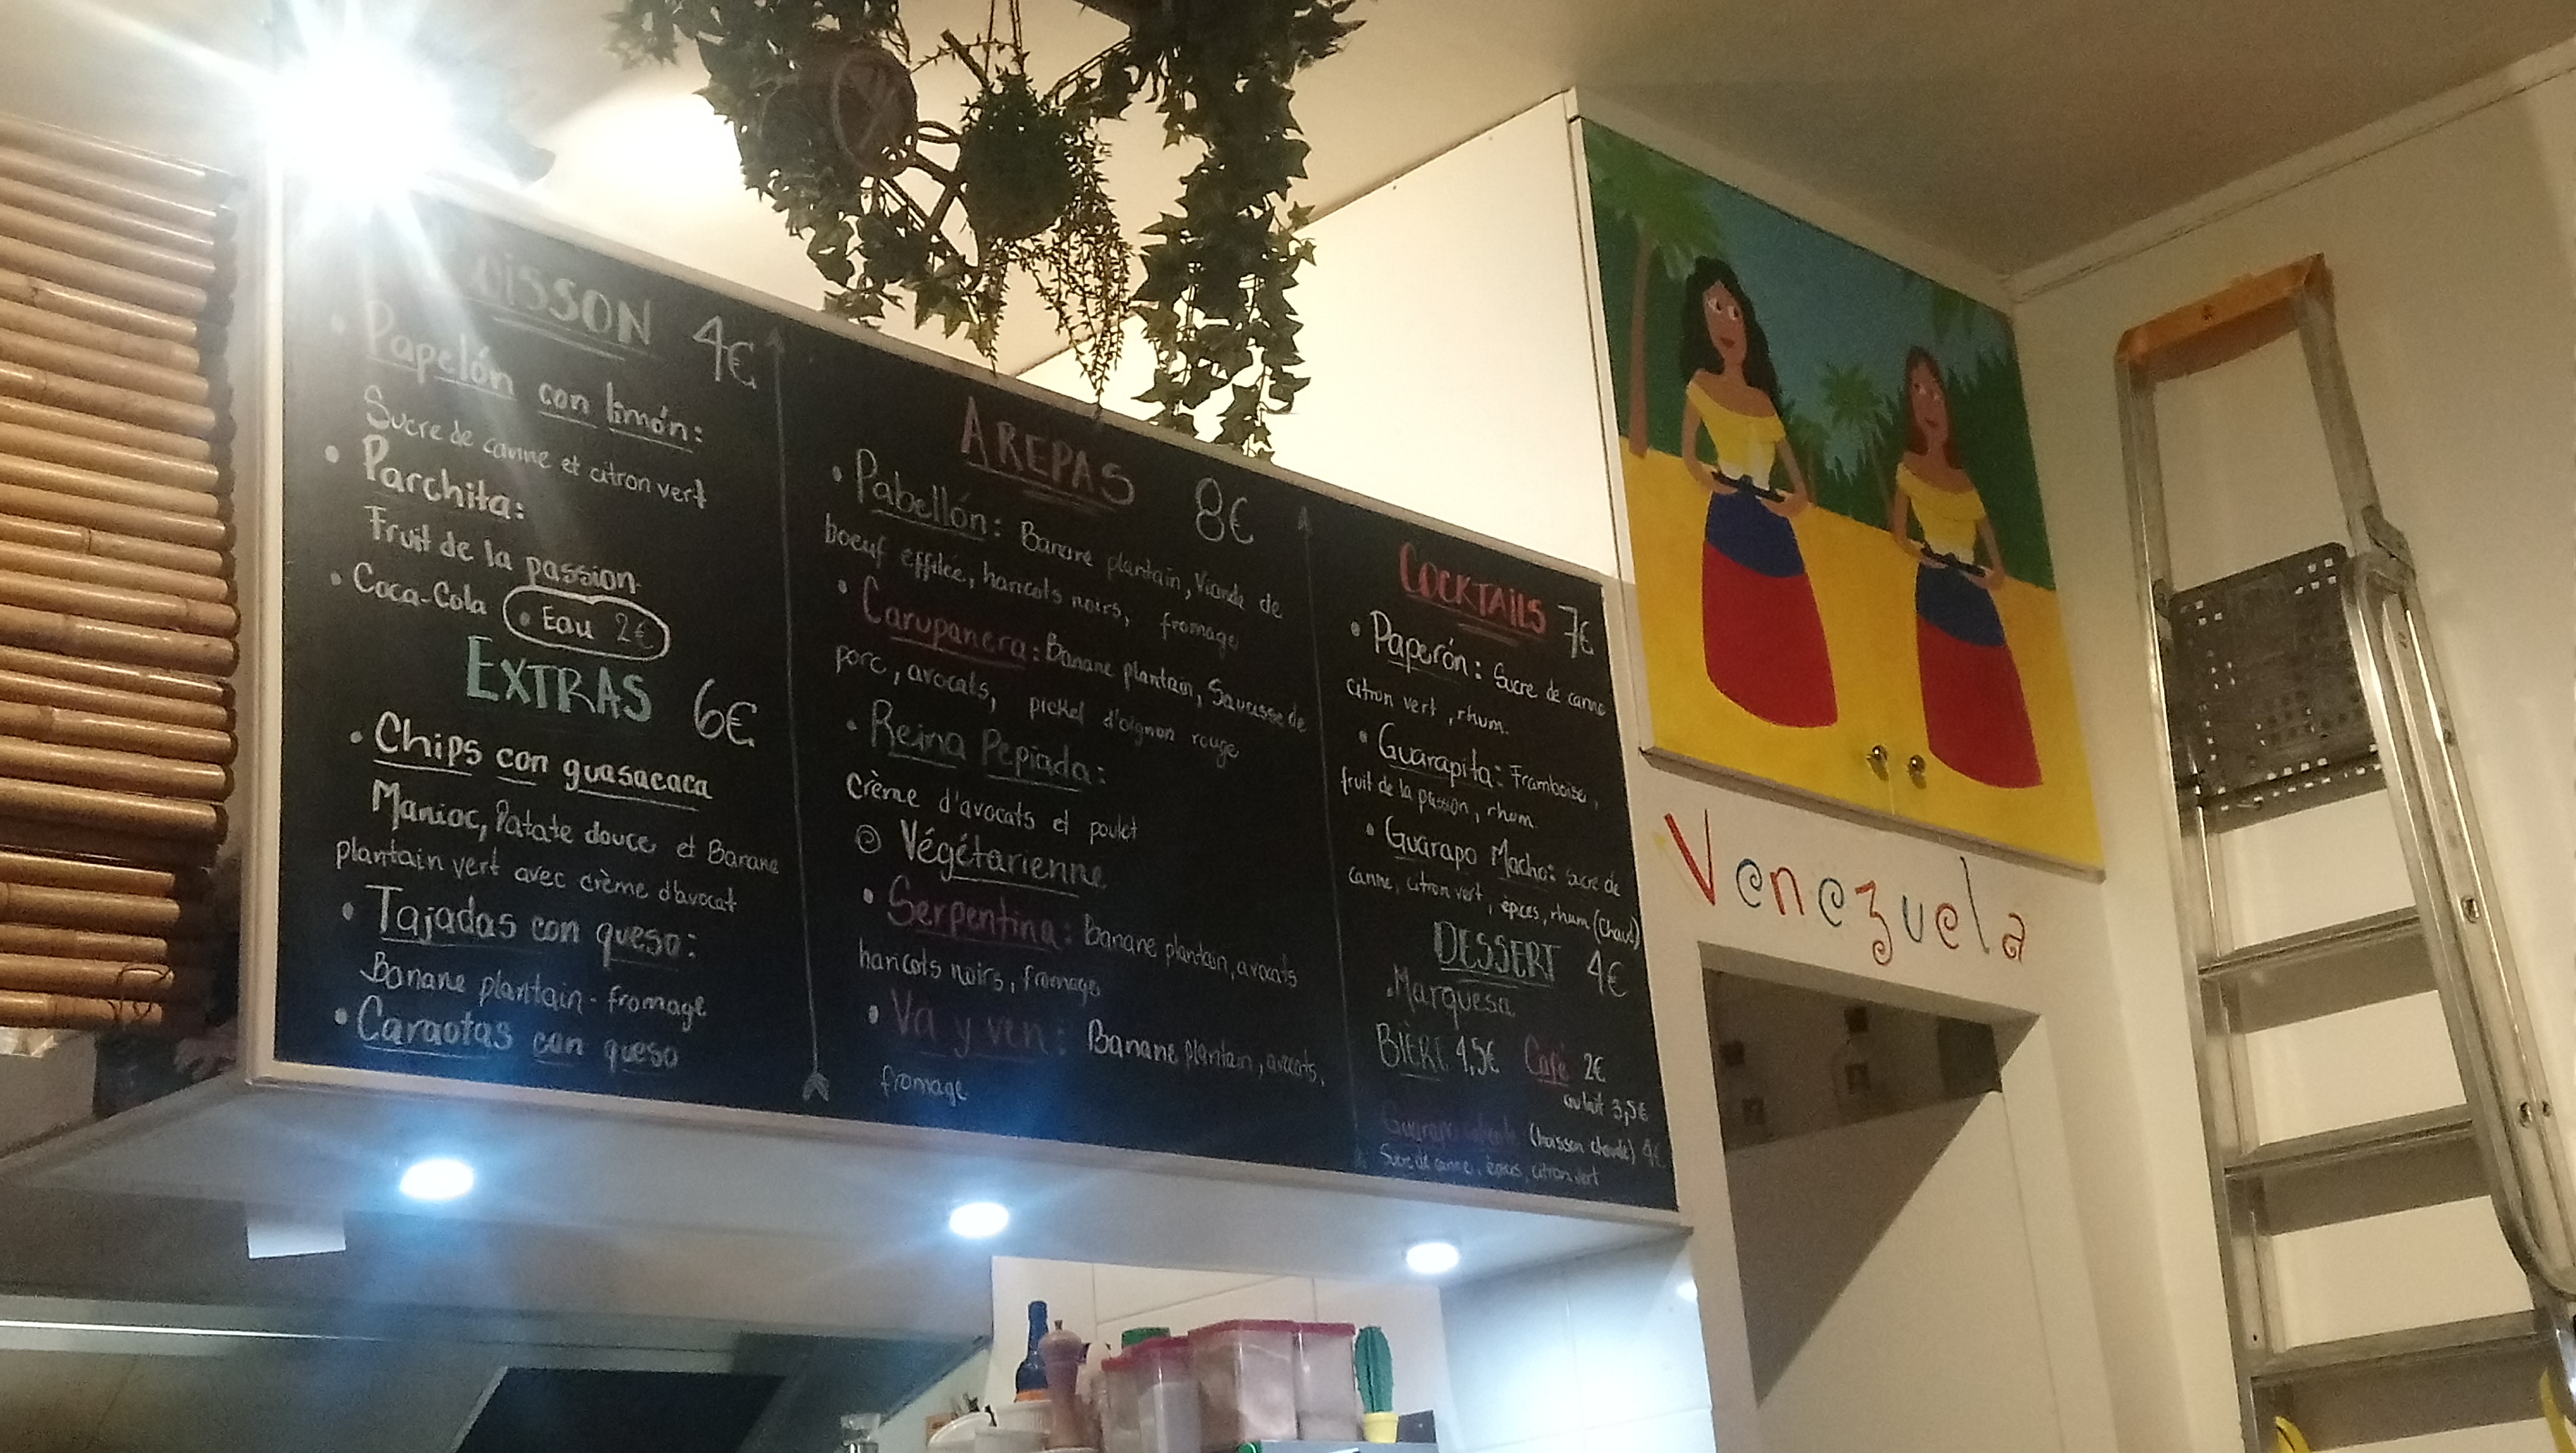 OISSON 4€
• Papelón con limón:
Sucre de canne et citron vert
• Parchita:
Fruit de la passion
• Coca-Cola • Eau 2€
EXTRAS 6€
• Chips con guasacaca
Manioc, Patate douce et Banane
plantain vert avec crème d'avocat
• Tajadas con queso:
Banane plantain - fromage
• Caraotas con queso
AREPAS 8€
• Pabellón: Banane plantain, Viande de
boeuf effilée, haricots noirs, fromage
• Carupanera: Banane plantain, Saucisse de
porc, avocats, pickel d'oignon rouge
• Reina Pepiada:
crème d'avocats et poulet
Végétarienne
• Serpentina: Banane plantain, avocats
haricots noirs, fromage
• Va y ven: Banane plantain, avocats,
fromage
COCKTAILS 7€
• Paperón: Sucre de canne
citron vert, rhum.
• Guarapita: Framboise,
fruit de la passion, rhum.
• Guarapo Macho: sucre de
canne, citron vert, épices, rhum (chaud)
DESSERT 4€
. Marquesa
BIÈRE 4,5€ Café 2€
au lait 3,5€
Guarapo caliente (boisson chaude) 4€
Sucre de canne, épices, citron vert
Venezuela